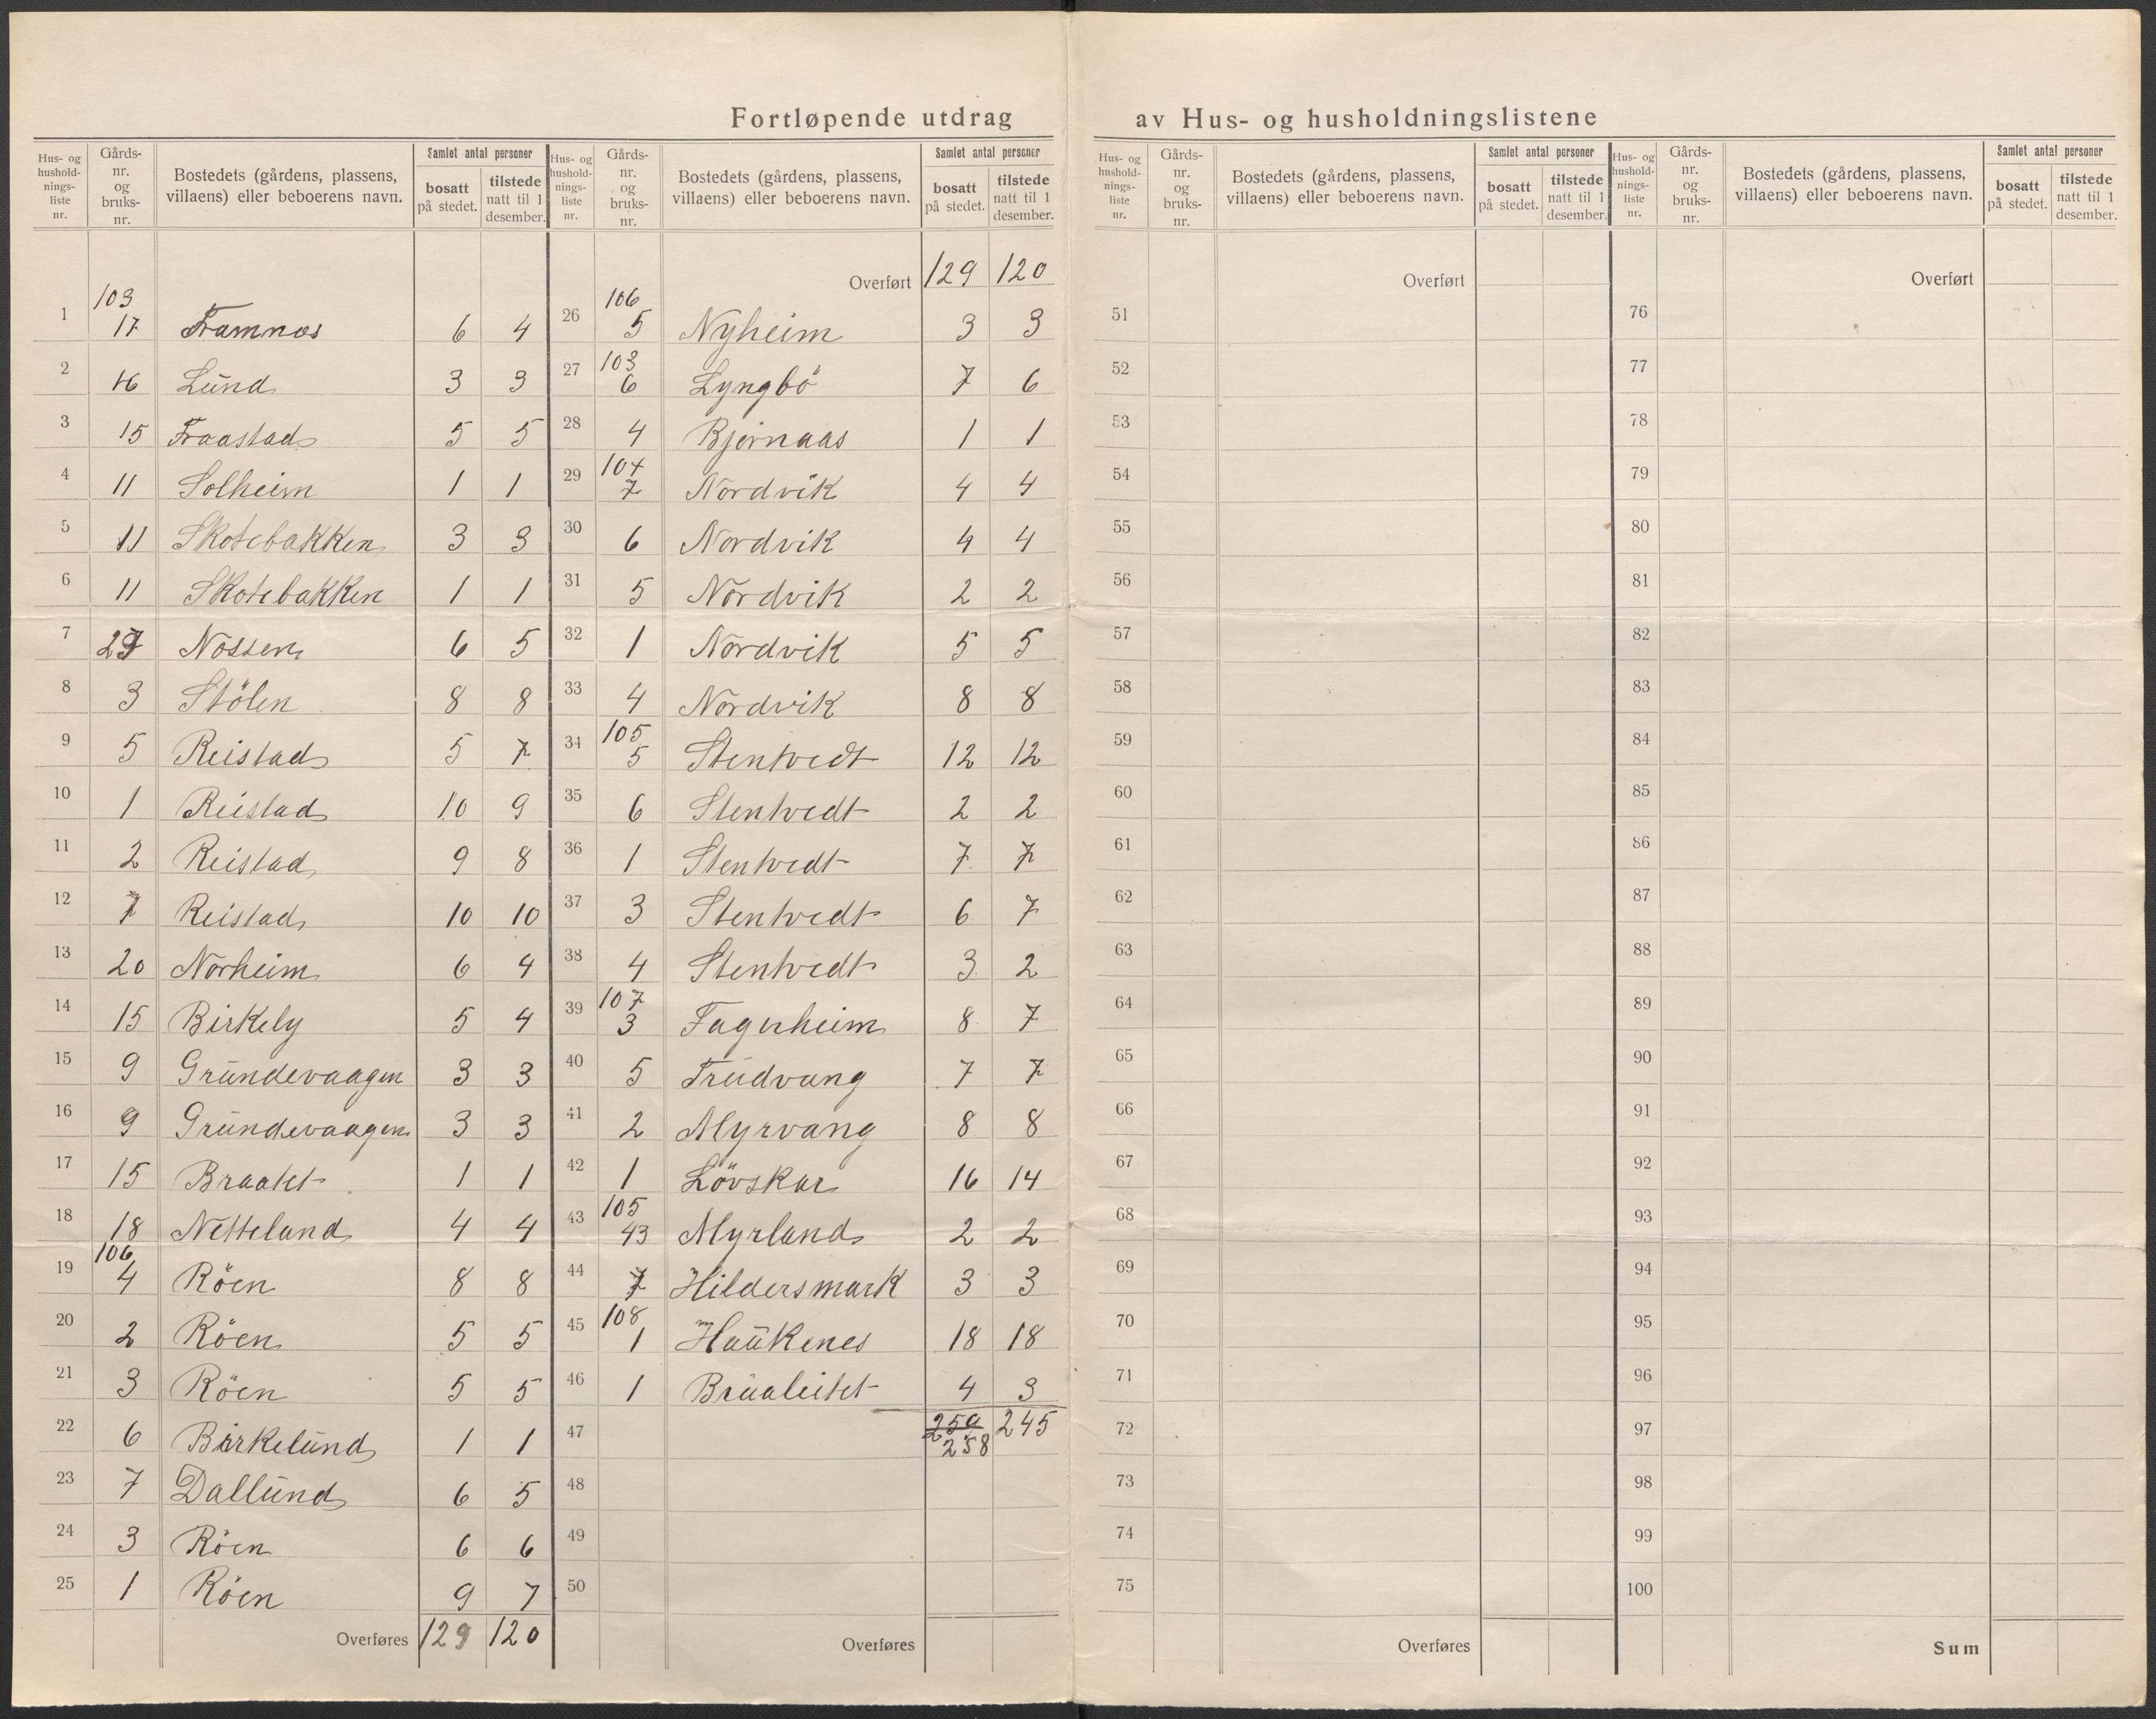 Fortløpende utdrag av Hus- og husholdningslistene
Hus- og hushold-nings-liste nr. Gårds-nr. og bruks-nr. Bostedets (gårdens, plassens, villaens) eller beboerens navn. Samlet antal personer bosatt på stedet. tilstede natt til 1 desember.
103
1 17 Framnæs 6 4
2 16 Lund 3 3
3 15 Fraastad 5 5
4 11 Solheim 1 1
5 11 Skotebakken 3 3
6 11 Skotebakken 1 1
7 Nossen 6 5
8 3 Stölen 8 8
9 5 Reistad 5 7
10 1 Reistad 10 9
11 2 Reistad 9 8
12 7 Reistad 10 10
13 20 Norheim 6 4
14 15 Birkely 5 4
15 9 Grundevaagen 3 3
16 9 Grundevaagen 3 3
17 15 Braatet 1 1
18 18 Netteland 4 4
106
19 4 Röen 8 8
20 2 Röen 5 5
21 3 Röen 5 5
22 6 Birkelund 1 1
23 7 Dallund 6 5
24 3 Röen 6 6
25 1 Röen 9 7
Overføres 129 120
Hus- og hushold-nings-liste nr. Gårds-nr. og bruks-nr. Bostedets (gårdens, plassens, villaens) eller beboerens navn. Samlet antal personer bosatt på stedet. tilstede natt til 1 desember.
Overført 129 120
106
26 5 Nyheim 3 3
103
27 6 Lyngbö 7 6
28 4 Bjørnaas 1 1
104
29 7 Nordvik 4 4
30 6 Nordvik 4 4
31 5 Nordvik 2 2
32 1 Nordvik 5 5
33 4 Nordvik 8 8
105
34 5 Stentvedt 12 12
35 6 Stentvedt 2 2
36 1 Stentvedt 7 7
37 3 Stentvedt 6 7
38 4 Stentvedt 3 2
107
39 3 Fagerheim 8 7
40 5 Trudvang 7 7
41 2 Myrvang 8 8
42 1 Lövskar 16 14
105
43 43 Myrland 2 2
44 7 Hildersmark 3 3
108
45 1 Haukenes 18 18
46 1 Brualeitet 4 3
47 259 245
258
48
49
50
Overføres
Hus- og hushold-nings-liste nr. Gårds-nr. og bruks-nr. Bostedets (gårdens, plassens, villaens) eller beboerens navn. Samlet antal personer bosatt på stedet. tilstede natt til 1 desember.
Overført
51
52
53
54
55
56
57
58
59
60
61
62
63
64
65
66
67
68
69
70
71
72
73
74
75
Overføres
Hus- og hushold-nings-liste nr. Gårds-nr. og bruks-nr. Bostedets (gårdens, plassens, villaens) eller beboerens navn. Samlet antal personer bosatt på stedet. tilstede natt til 1 desember.
Overført
76
77
78
79
80
81
82
83
84
85
86
87
88
89
90
91
92
93
94
95
96
97
98
99
100
Sum